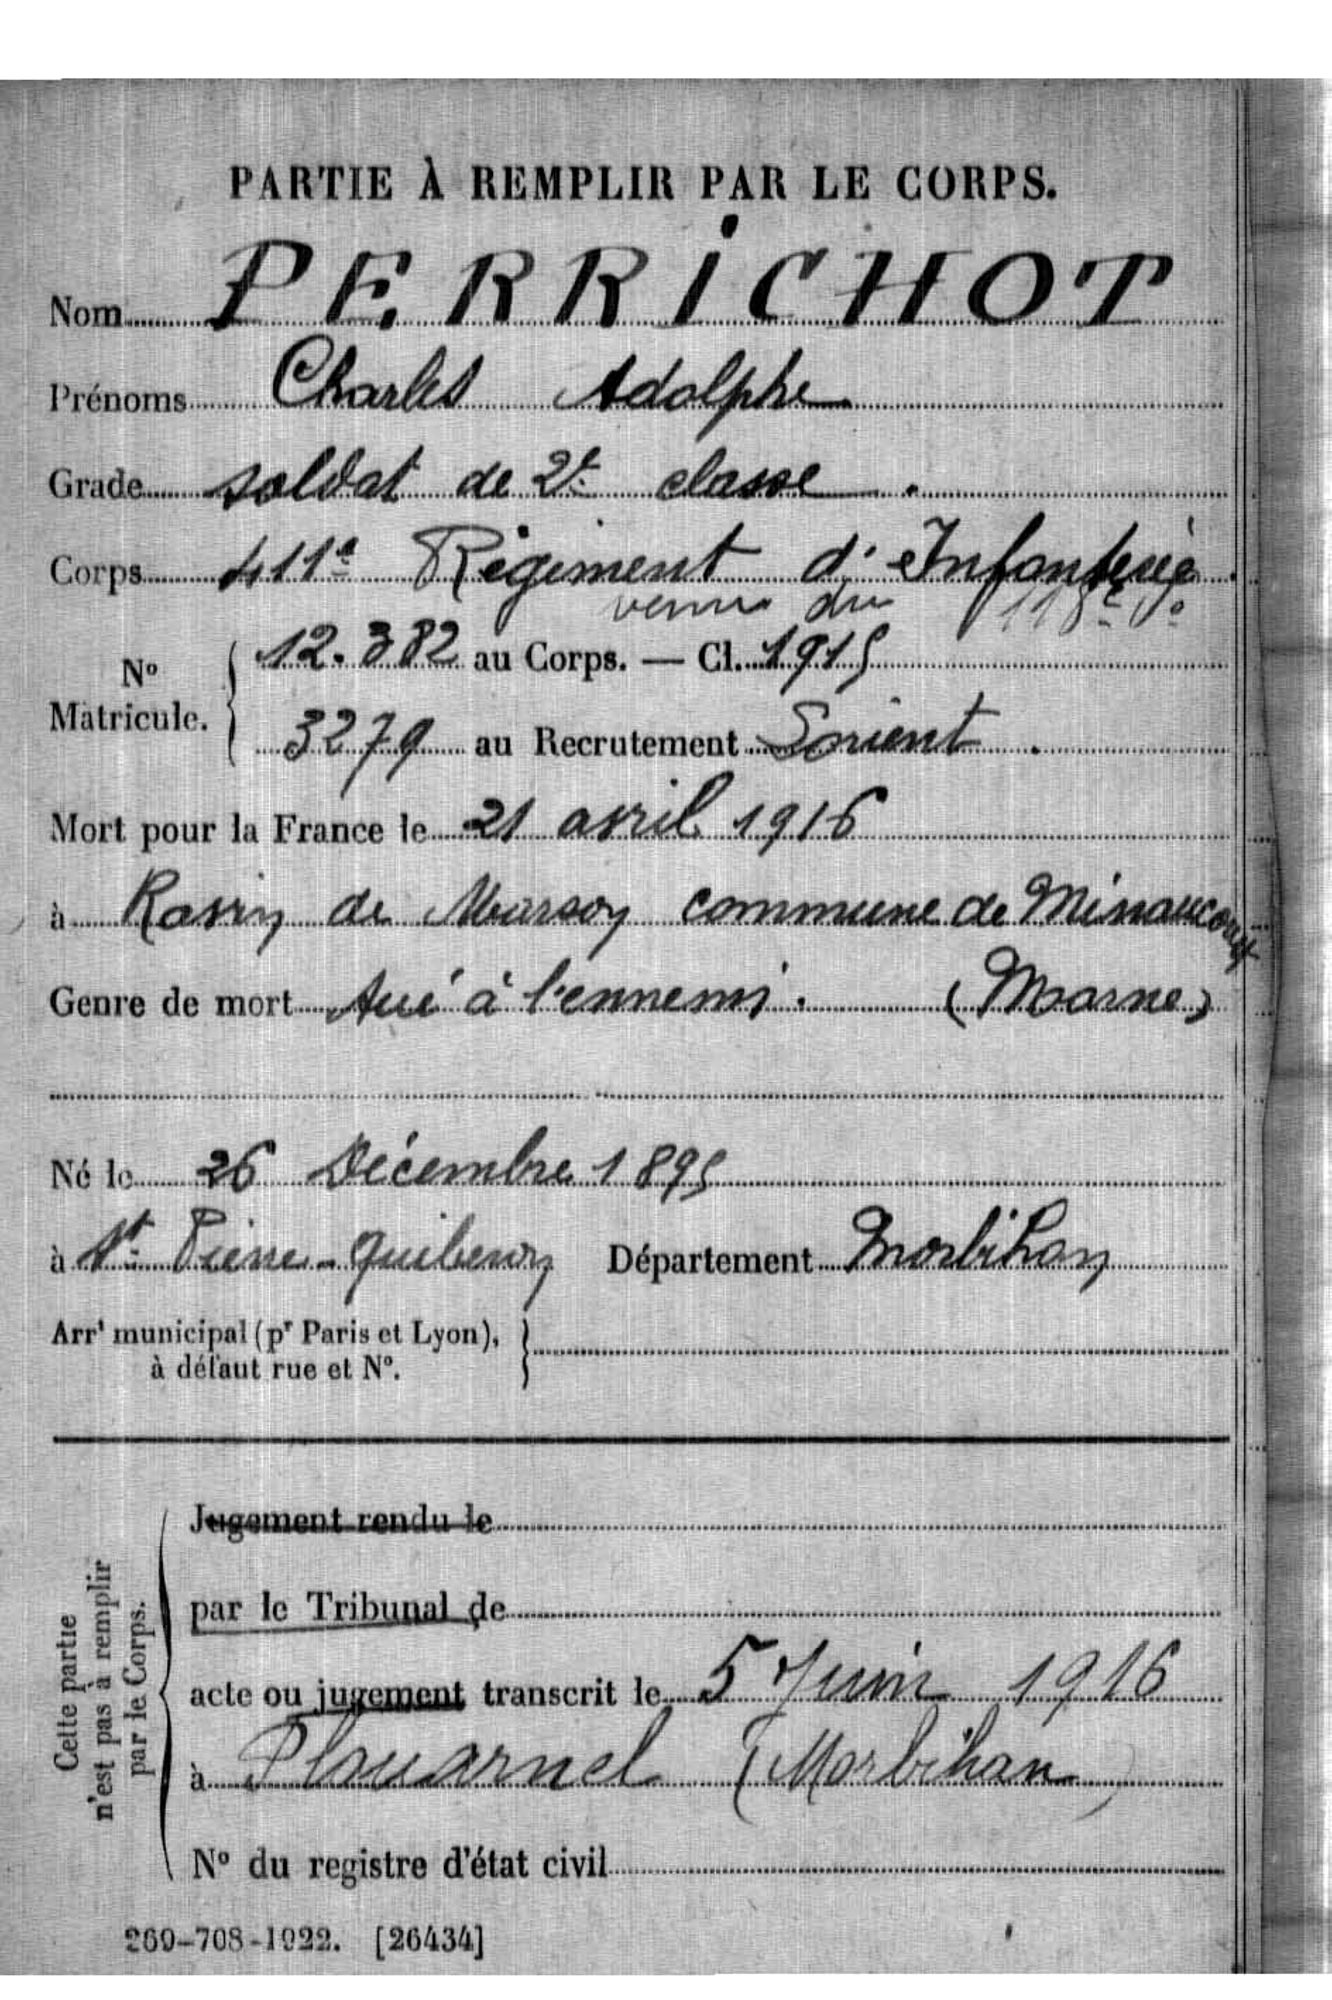 PARTIE À REMPLIR PAR LE CORPS.
Nom PERRICHOT
Prénoms Charles Adolphe
Grade soldat de 2e classe.
Corps 411e Régiment d'Infanterie.
venu du 118e
No Matricule. 12.382 au Corps. — Cl. 1915
3279 au Recrutement Lorient.
Mort pour la France le 21 avril 1916
à Ravin de Marson commune de Minaucourt
Genre de mort tué à l'ennemi. (Marne)
Né le 26 Décembre 1895
à St Pierre-Quiberon Département Morbihan
Arrt municipal (pr Paris et Lyon),
à défaut rue et No.
Cette partie
n'est pas à remplir
par le Corps.
Jugement rendu le
par le Tribunal de
acte ou jugement transcrit le 5 Juin 1916
à Plouarnel (Morbihan)
No du registre d'état civil
269-708-1922. [26434]